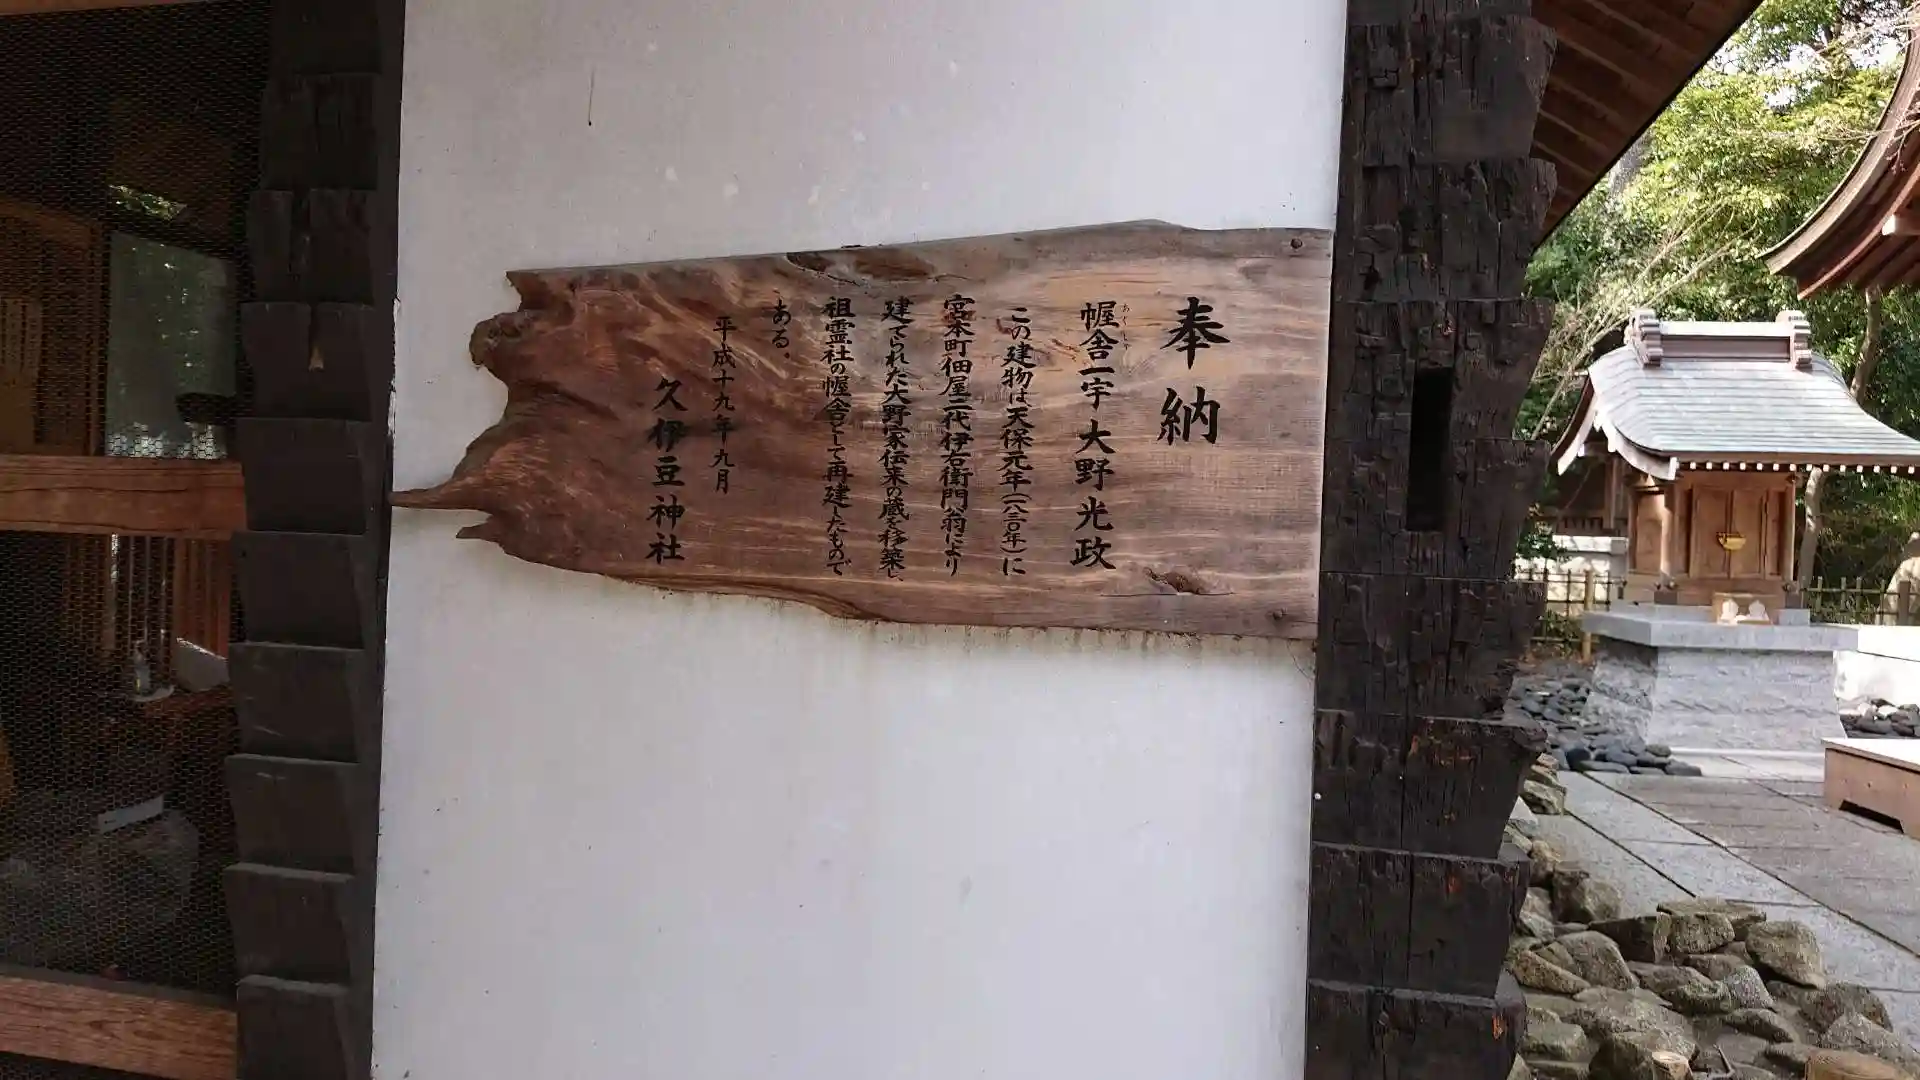 奉納
幄舎一宇 大野光政
あくしゃ
この建物は天保元年(一八三〇年)に
宮本町佃屋二代伊右衛門翁により
建てられた大野家伝来の蔵を移築し、
祖霊社の幄舎として再建したもので
ある。
平成十九年九月
久伊豆神社